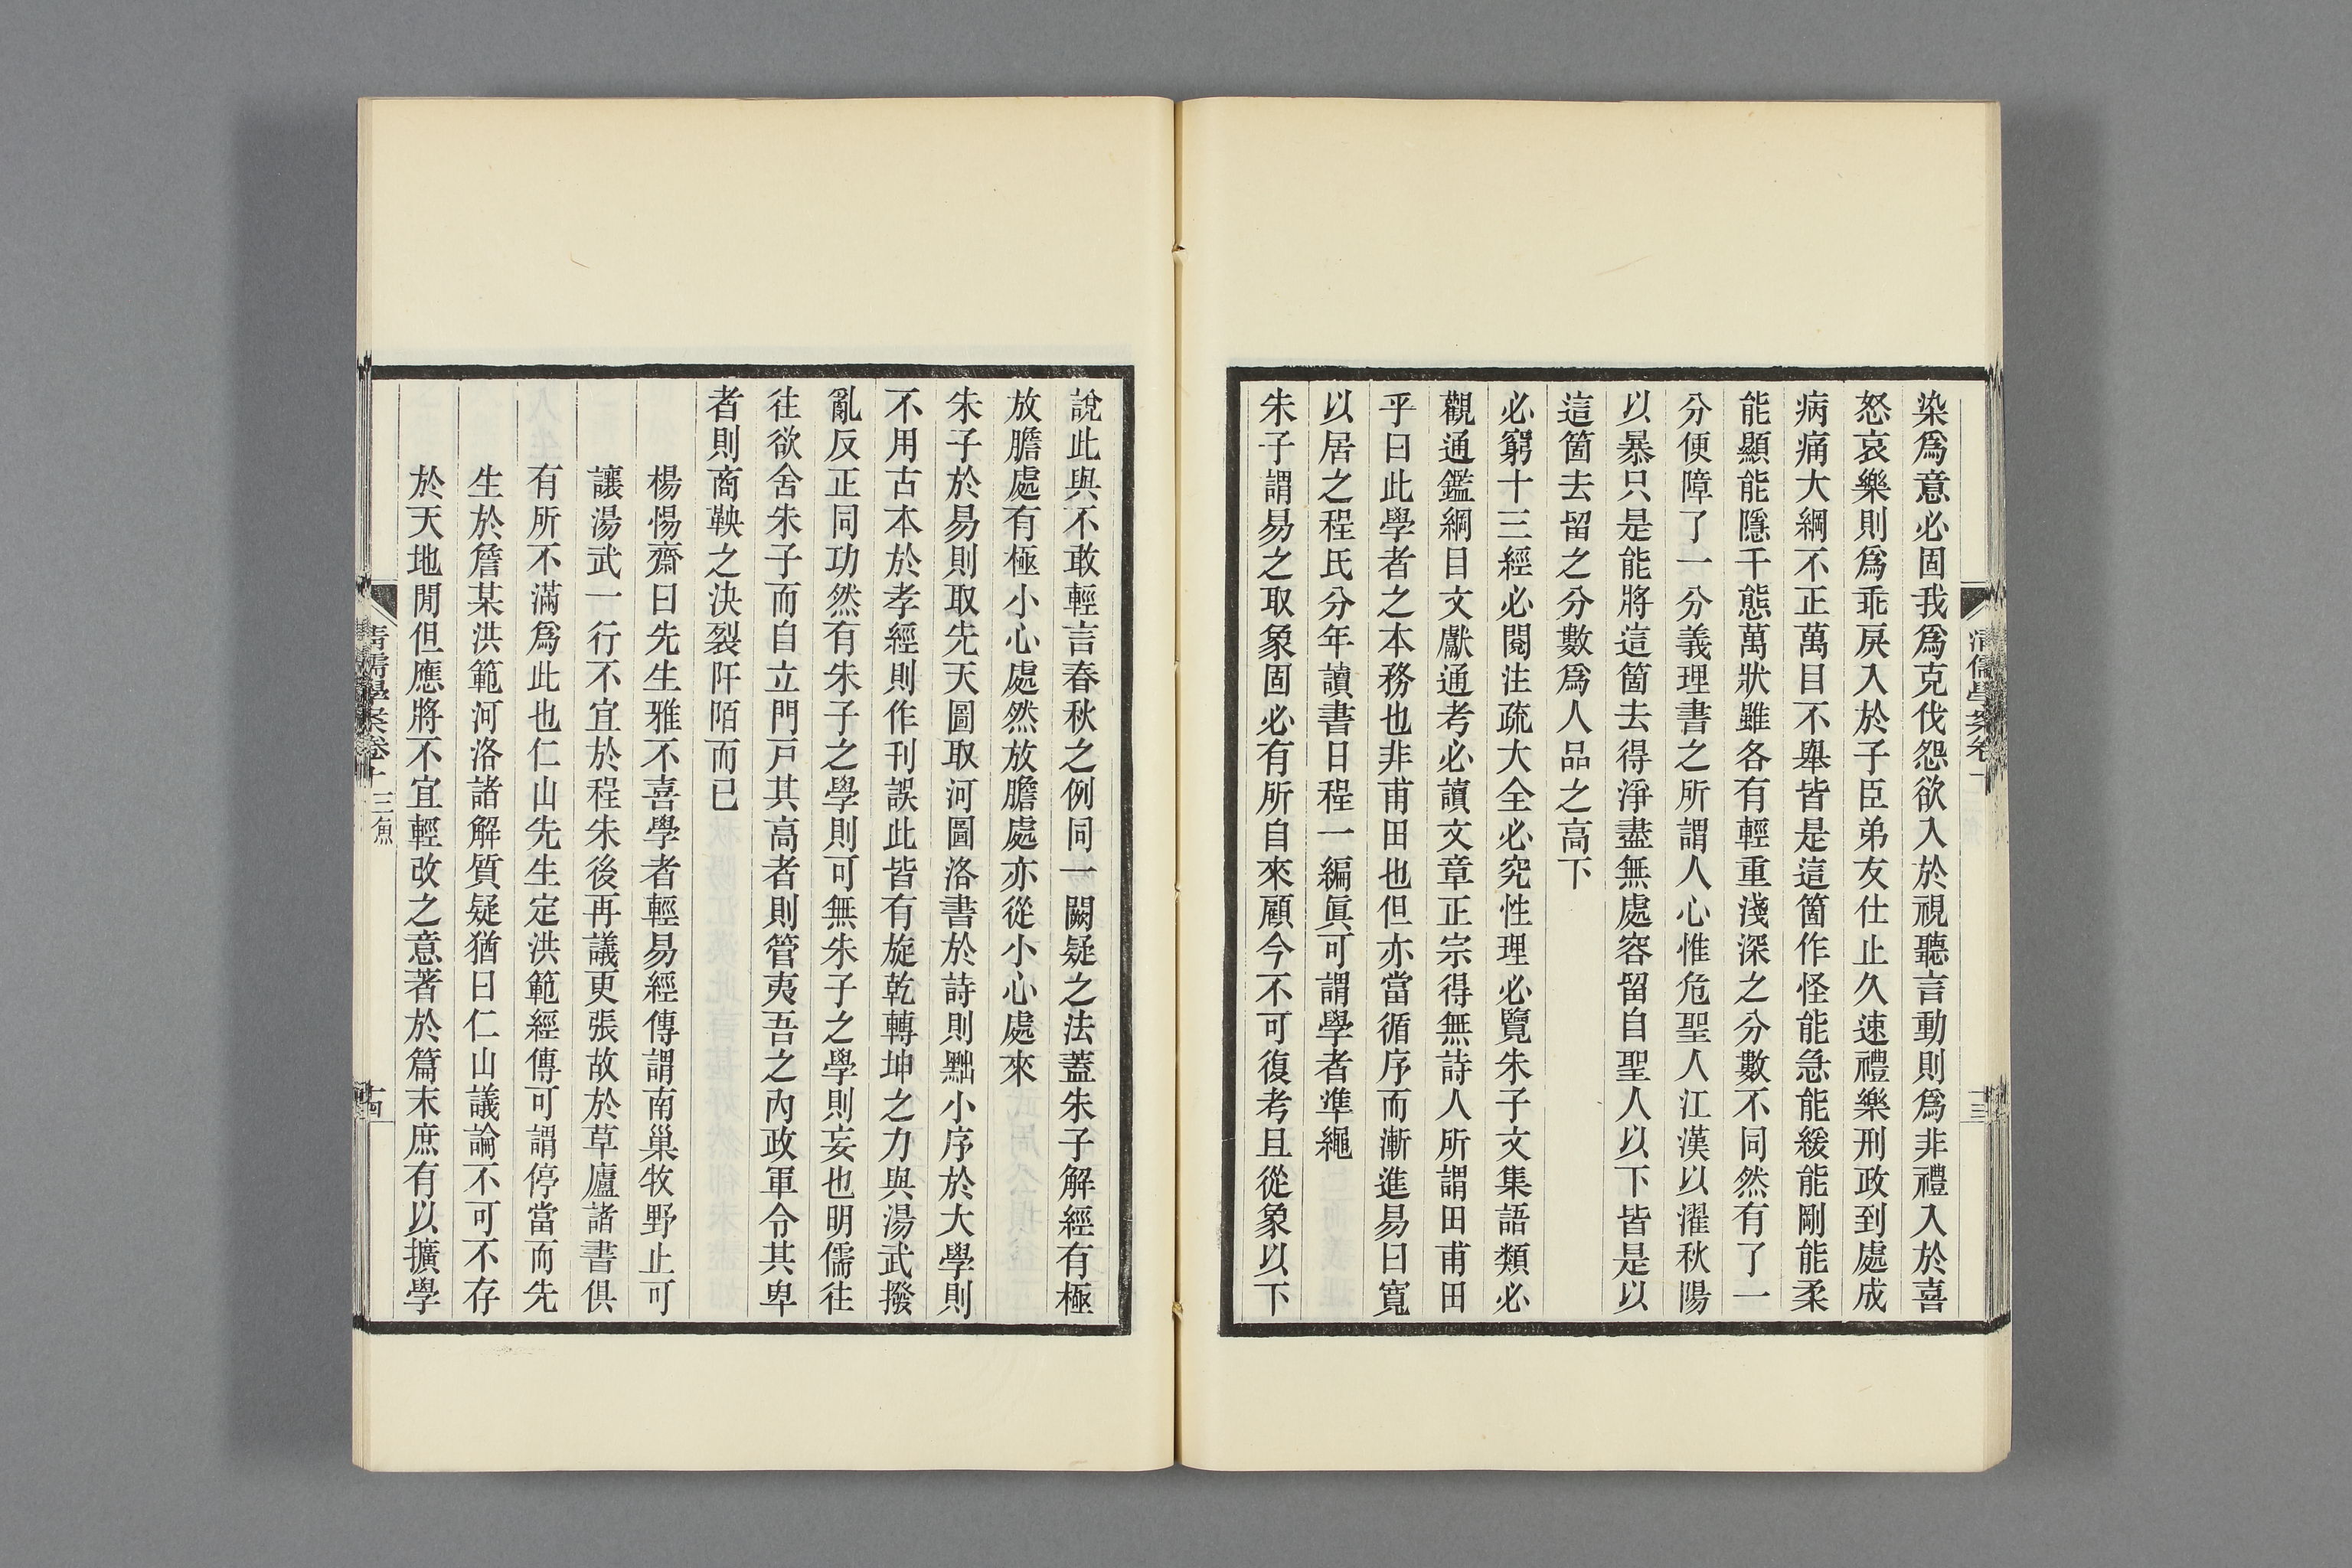 染爲意必固我爲克伐怨欲入於視聽言動則爲非禮入於喜
怒哀樂則爲乖戾入於子臣弟友仕止久速禮樂刑政到處成
病痛大綱不正萬目不舉皆是這箇作怪能急能緩能剛能柔
能顯能隱千態萬狀雖各有輕重淺深之分數不同然有了一
分便障了一分義理書之所謂人心惟危聖人江漢以濯秋陽
以暴只是能將這箇去得淨盡無處容留自聖人以下皆是以
這箇去留之分數爲人品之高下
必窮十三經必閱注疏大全必究性理必覽朱子文集語類必
觀通鑑綱目文獻通考必讀文章正宗得無詩人所謂田甫田
乎曰此學者之本務也非甫田也但亦當循序而漸進易曰寬
以居之程氏分年讀書日程一編眞可謂學者準繩
朱子謂易之取象固必有所自來顧今不可復考且從象以下
清儒學案卷十
十三
說此與不敢輕言春秋之例同一闕疑之法蓋朱子解經有極
放膽處有極小心處然放膽處亦從小心處來
朱子於易則取先天圖取河圖洛書於詩則黜小序於大學則
不用古本於孝經則作刊誤此皆有旋乾轉坤之力與湯武撥
亂反正同功然有朱子之學則可無朱子之學則妄也明儒往
往欲舍朱子而自立門戸其高者則管夷吾之內政軍令其卑
者則商鞅之決裂阡陌而已
楊惕齋曰先生雅不喜學者輕易經傳謂南巢牧野止可
讓湯武一行不宜於程朱後再議更張故於草廬諸書俱
有所不滿爲此也仁山先生定洪範經傳可謂停當而先
生於詹某洪範河洛諸解質疑猶曰仁山議論不可不存
於天地閒但應將不宜輕改之意著於篇末庶有以擴學
清儒學案卷十 三魚
十四